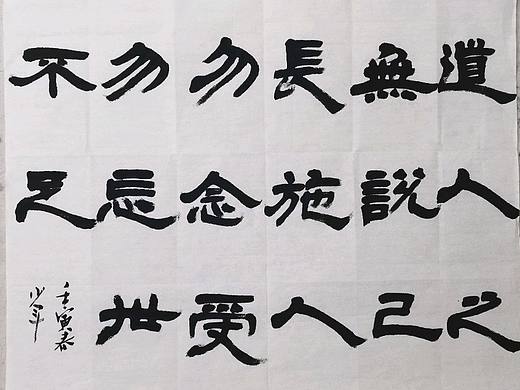 道人之
無說己
長施人
勿念受
勿忘世
不足
壬寅春